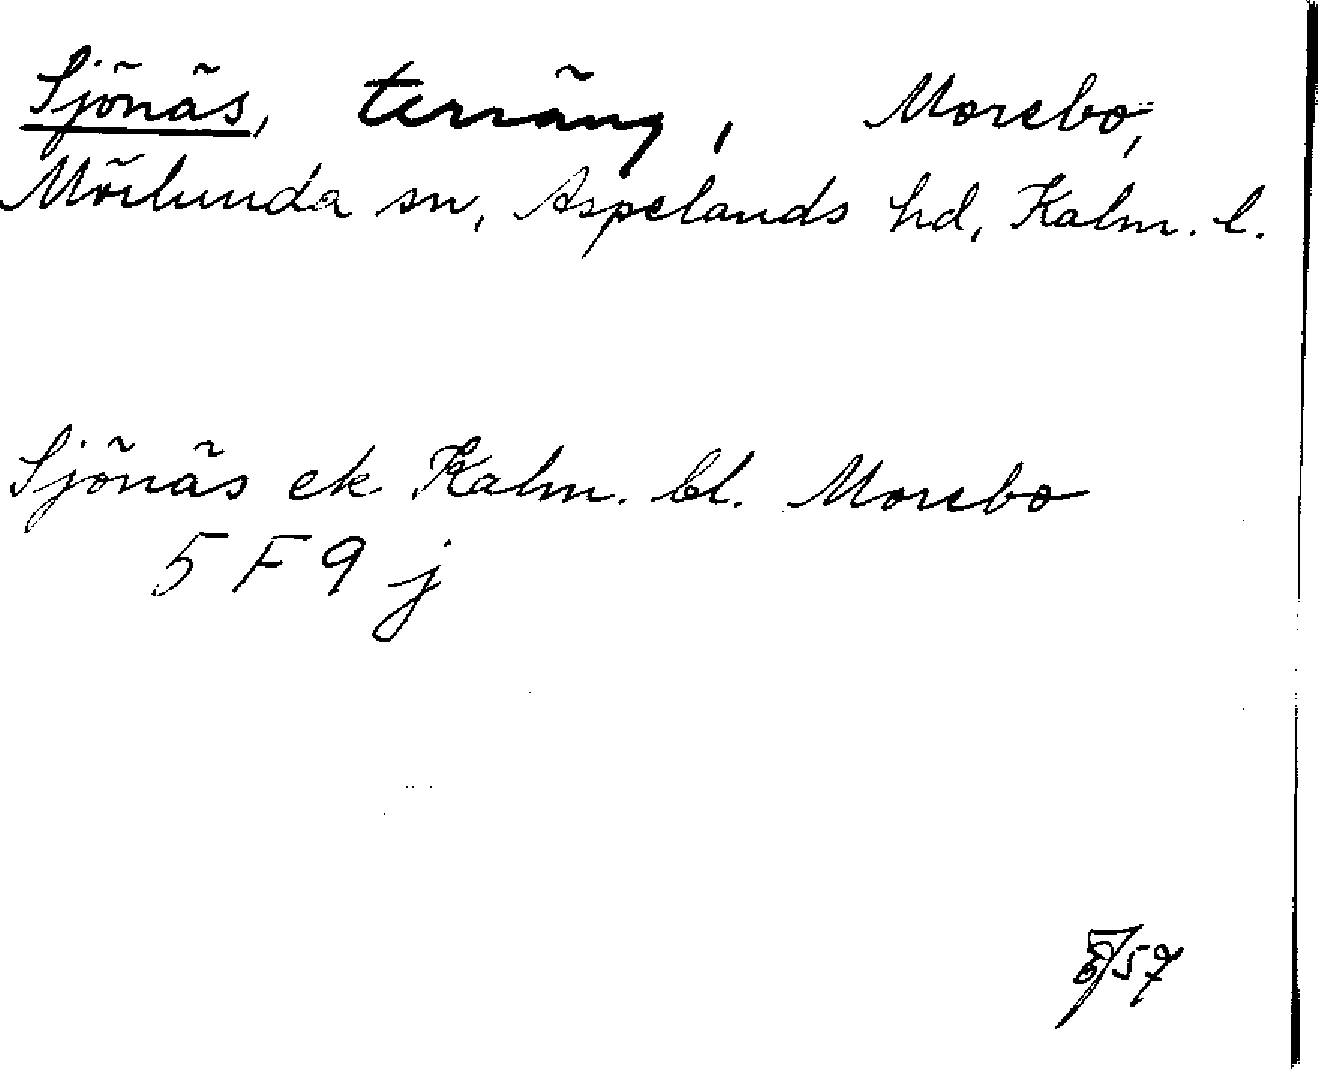 Sjönäs, terräng, Morebo,
Mörlunda sn, Aspelands hd, Kalm. l.
Sjönäs ek Kalm. bl. Morebo
5 F 9 j